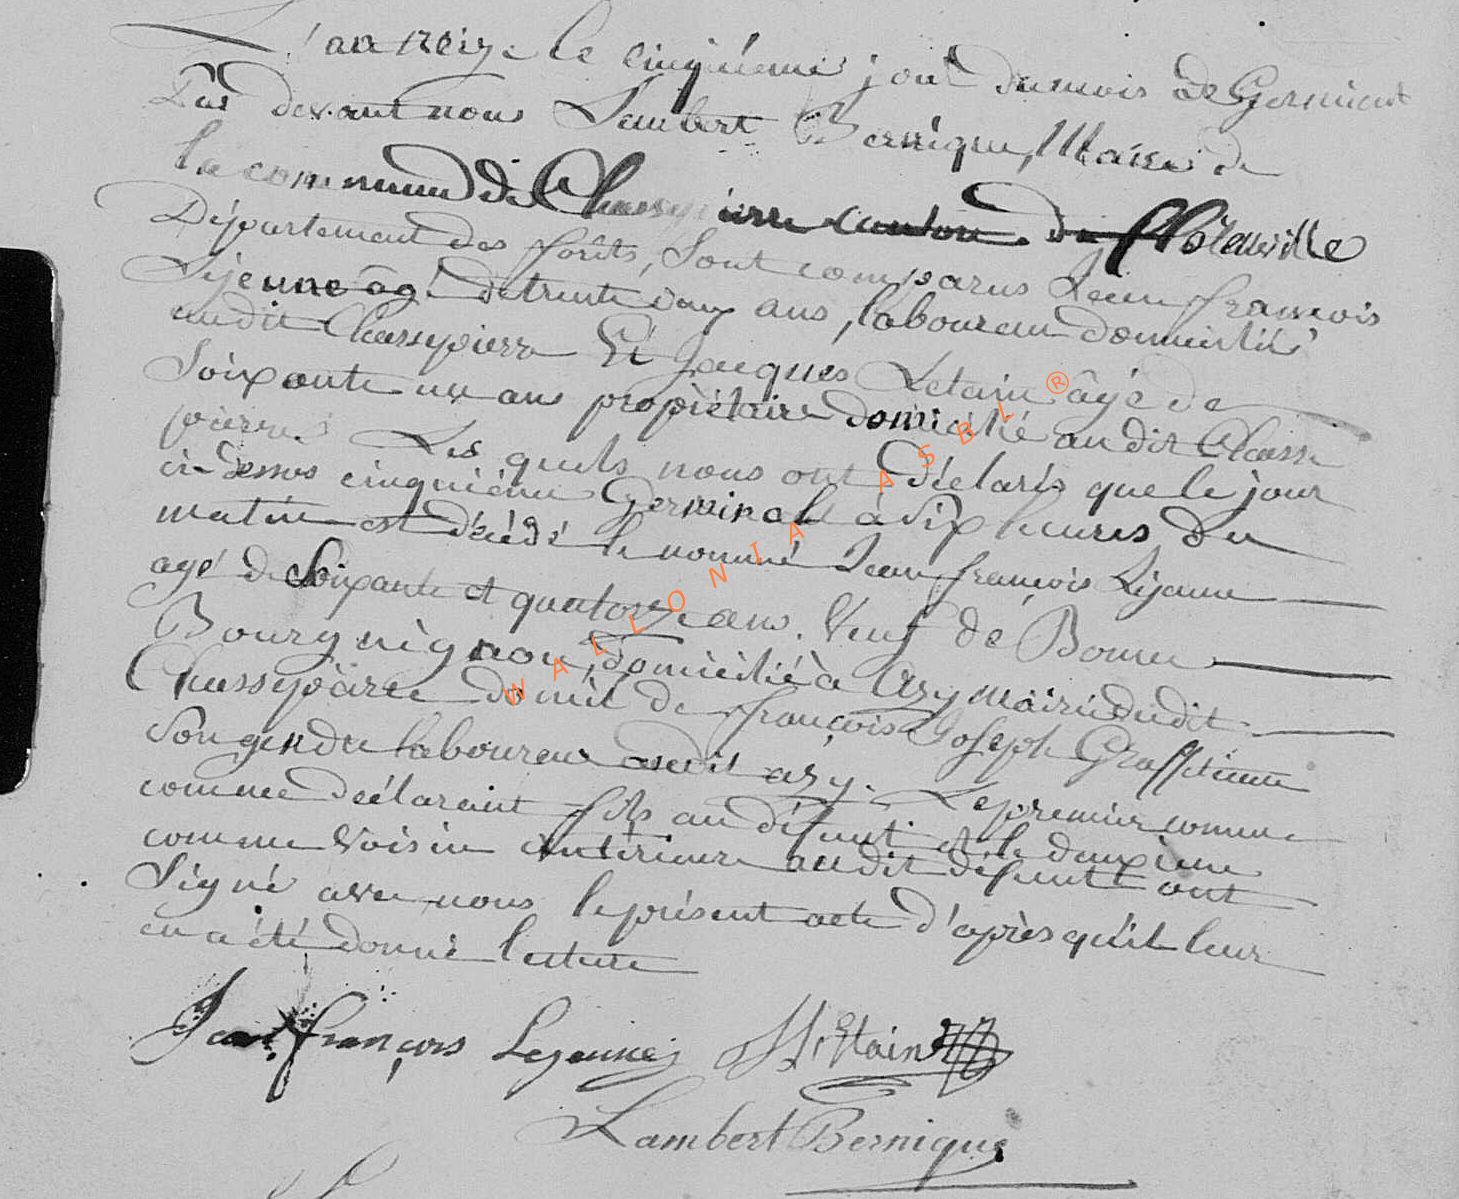 L'an treize le cinquieme jour du mois de Germinal
Par devant nous Lambert Bernique, Maire de
la commune de Chassepierre canton de Florenville
Département des forêts, Sont comparus Jean françois
Lejeune âgé de trente deux ans, laboureur domicilié
audit Chassepierre Et Jacques Letain âgé de
Soixante un ans propriétaire domicilié audit Chasse
pierre Les quels nous ont déclarés que le jour
ci-dessus cinquième Germinal à six heures du
matin est décédé le nommé Jean françois Lejeune
agé de Soixante et quatorze ans. Veuf de
Bourguignon, domicilié à Azy mairie dudit
Chassepierre de françois Joseph
Son gendre laboureur audit azy. Le premier comme
comme déclarant fils au défunt et le deuxieme
comme Voisin audit défunt ont
Signé avec nous le présent acte d'après qu'il leur
en a été donné lecture
Jean françois Lejeune J Letain
Lambert Bernique
WALLONIA ASBL ®